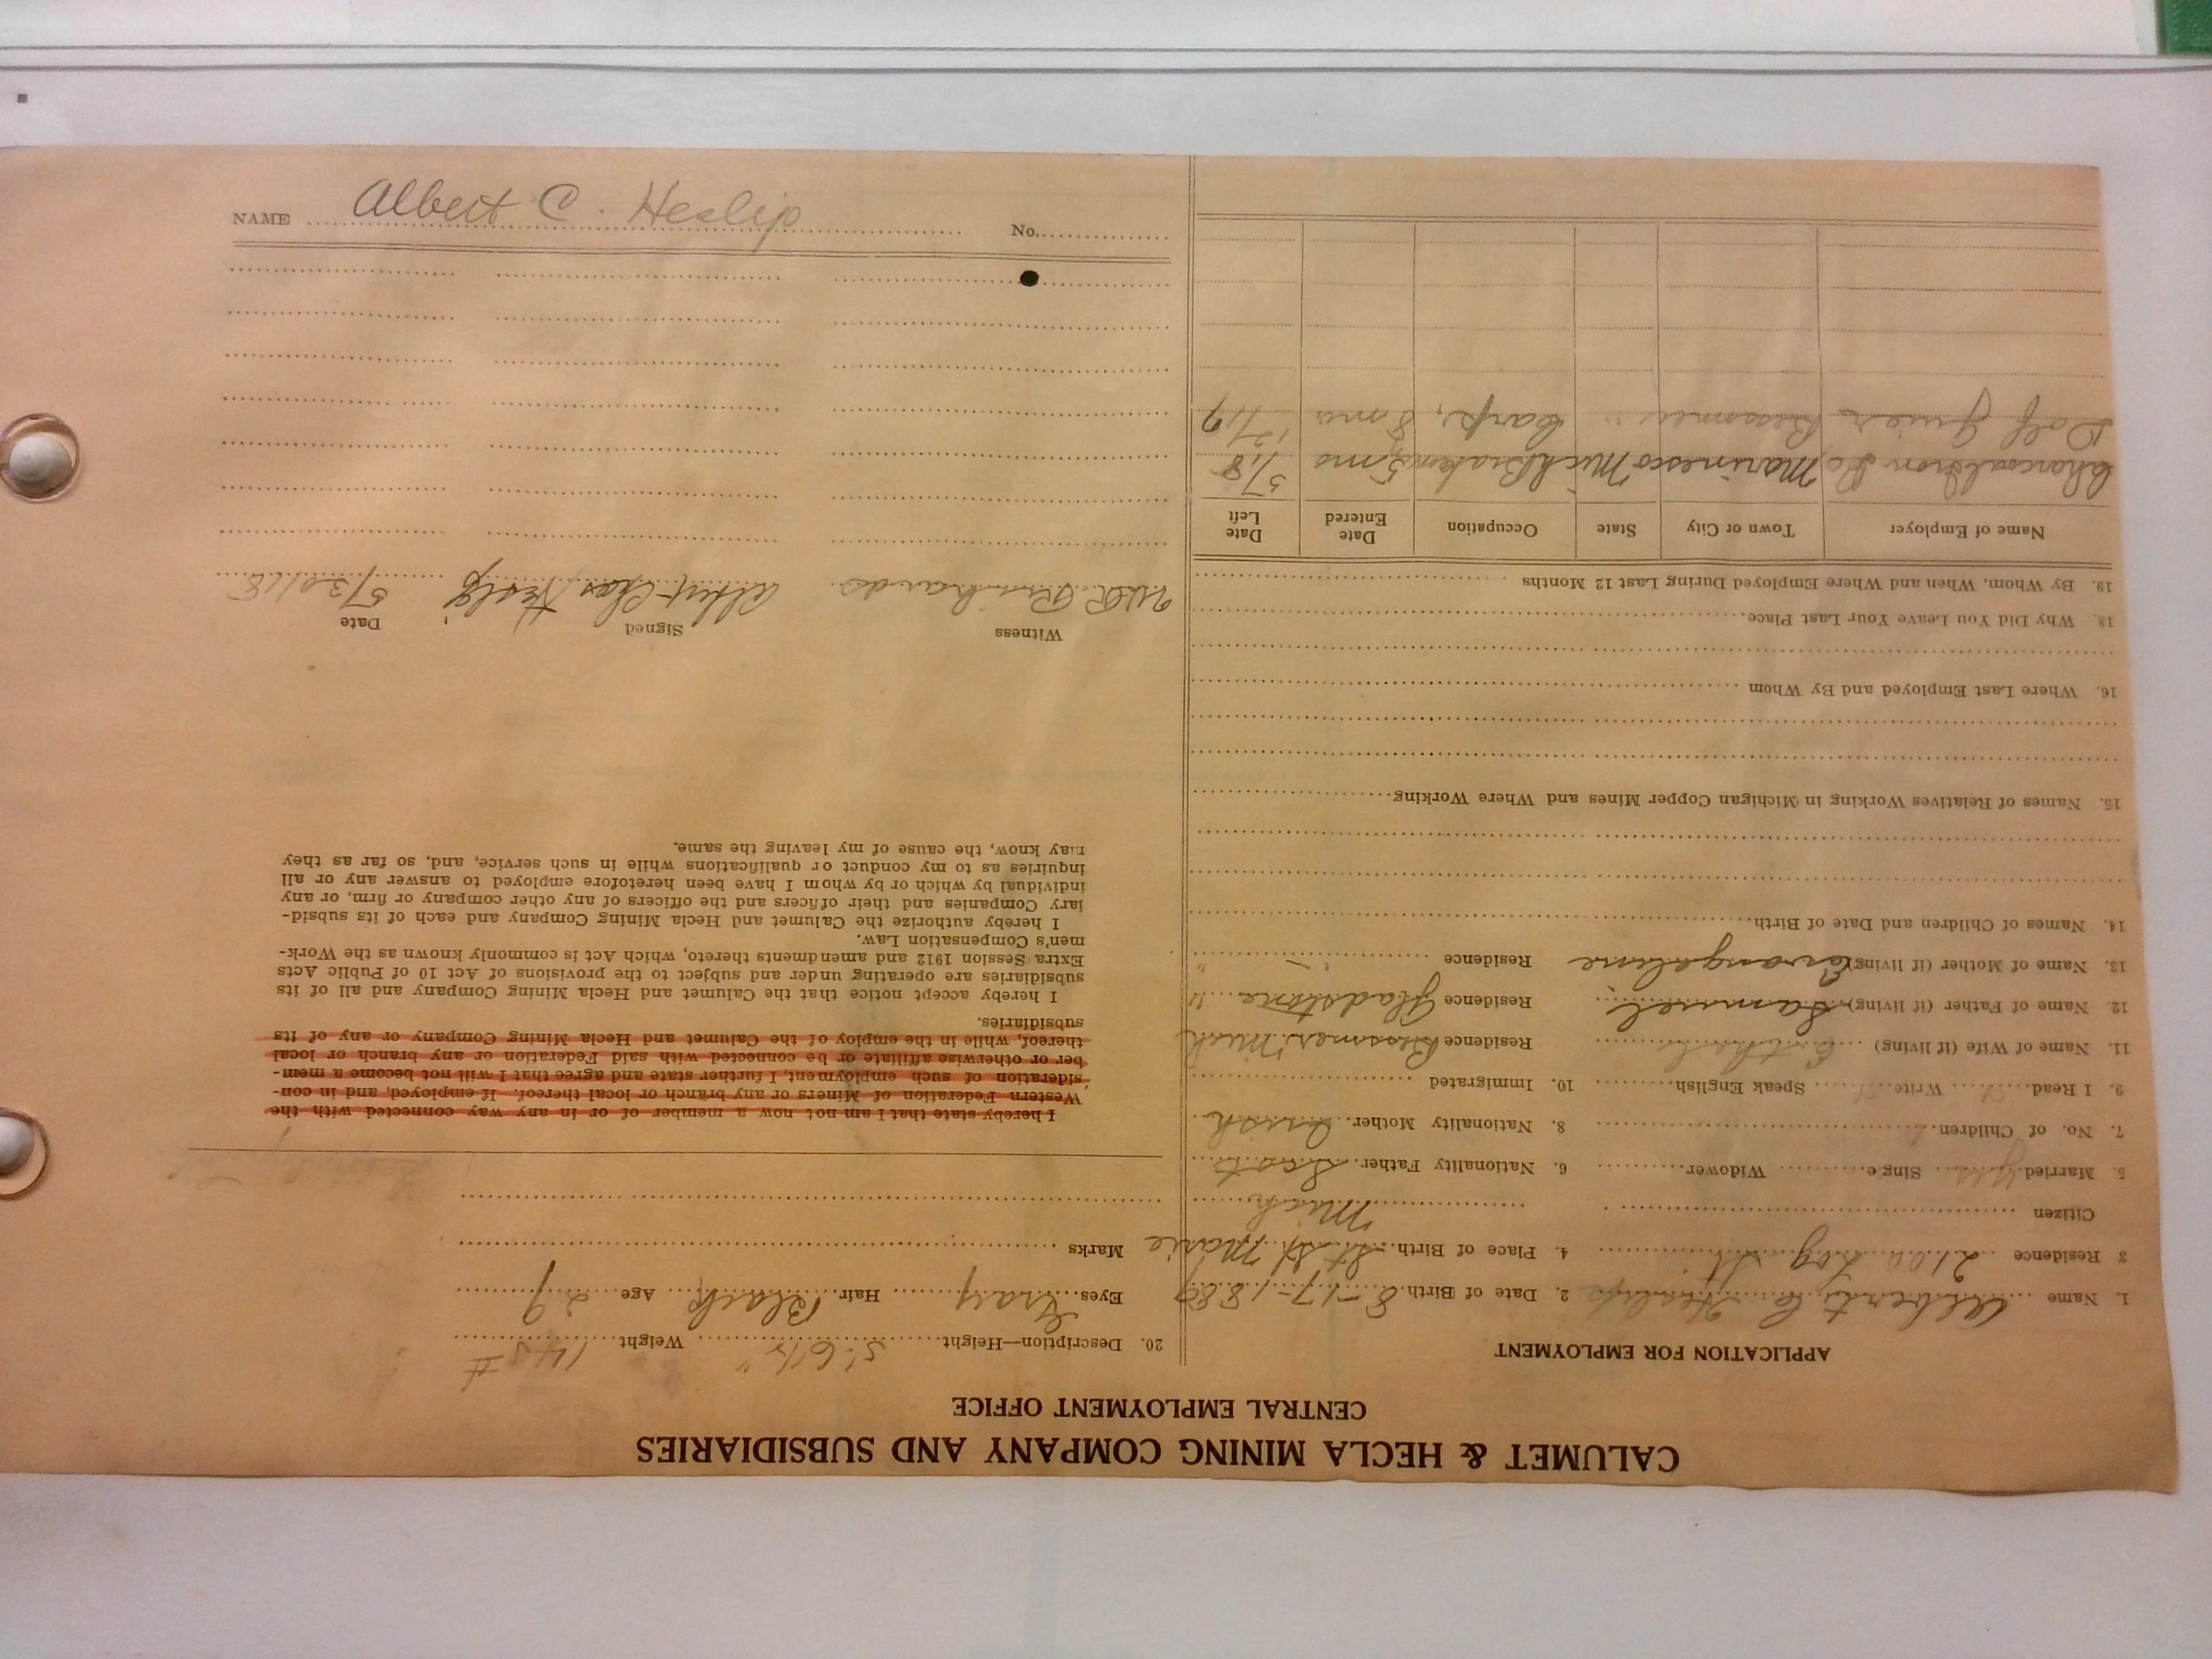 CALUMET & HECLA MINING COMPANY AND SUBSIDIARIES
CENTRAL EMPLOYMENT OFFICE
APPLICATION FOR EMPLOYMENT
1. Name Albert C. Heslip 2. Date of Birth 8-17-1889
3 Residence 2100 Log St 4. Place of Birth St St Marie
Citizen Mich
5. Married yes Single Widower 6. Nationality Father Scot
7. No. of Children 8. Nationality Mother Irish
9. I Read Write Speak English 10. Immigrated
11. Name of Wife (if living) Ethel Residence Bessemer Mich
12. Name of Father (if living) Samuel Residence Gladstone "
13. Name of Mother (if living) Evangeline Residence " "
14. Names of Children and Date of Birth
15. Names of Relatives Working in Michigan Copper Mines and Where Working
16. Where Last Employed and By Whom
18. Why Did You Leave Your Last Place
19. By Whom, When and Where Employed During Last 12 Months
Name of Employer Town or City State Occupation Date Entered Date Left
Charcoal Iron Co Marinesco Mich Brakeman 5 mo 5/18
Bessemer " Carp, 8 mo 12/17
20. Description—Height 5' 6½" Weight 145 #
Eyes Gray Hair Black Age 29
Marks
I hereby state that I am not now a member of or in any way connected with the
Western Federation of Miners or any branch or local thereof. If employed, and in con-
sideration of such employment, I further state and agree that I will not become a mem-
ber or otherwise affiliate or be connected with said Federation or any branch or local
thereof, while in the employ of the Calumet and Hecla Mining Company or any of its
subsidiaries.
I hereby accept notice that the Calumet and Hecla Mining Company and all of its
subsidiaries are operating under and subject to the provisions of Act 10 of Public Acts
Extra Session 1912 and amendments thereto, which Act is commonly known as the Work-
men's Compensation Law.
I hereby authorize the Calumet and Hecla Mining Company and each of its subsid-
iary Companies and their officers and the officers of any other company or firm, or any
individual by which or by whom I have been heretofore employed to answer any or all
inquiries as to my conduct or qualifications while in such service, and, so far as they
may know, the cause of my leaving the same.
Witness Signed Date
Albert Chas Heslip 5/30/18
NAME Albert C. Heslip No.